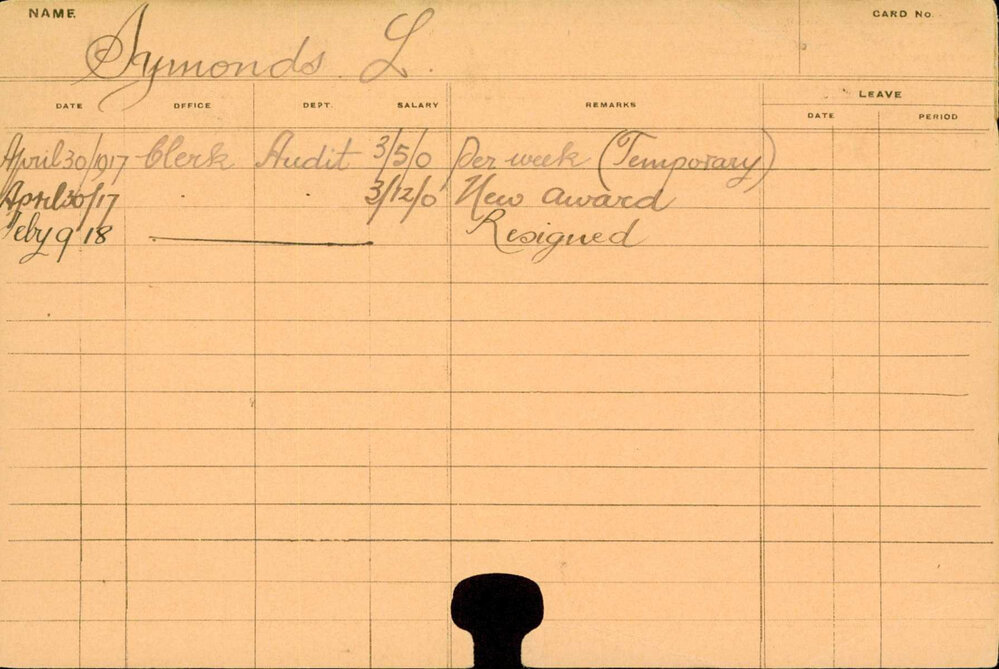 NAME. CARD No.
Symonds. L.
DATE OFFICE DEPT. SALARY REMARKS LEAVE
DATE PERIOD
April 30/1917 Clerk Audit 3/5/0 per week (Temporary)
April 30/17 3/12/0 New award
Feby 9 18 Resigned